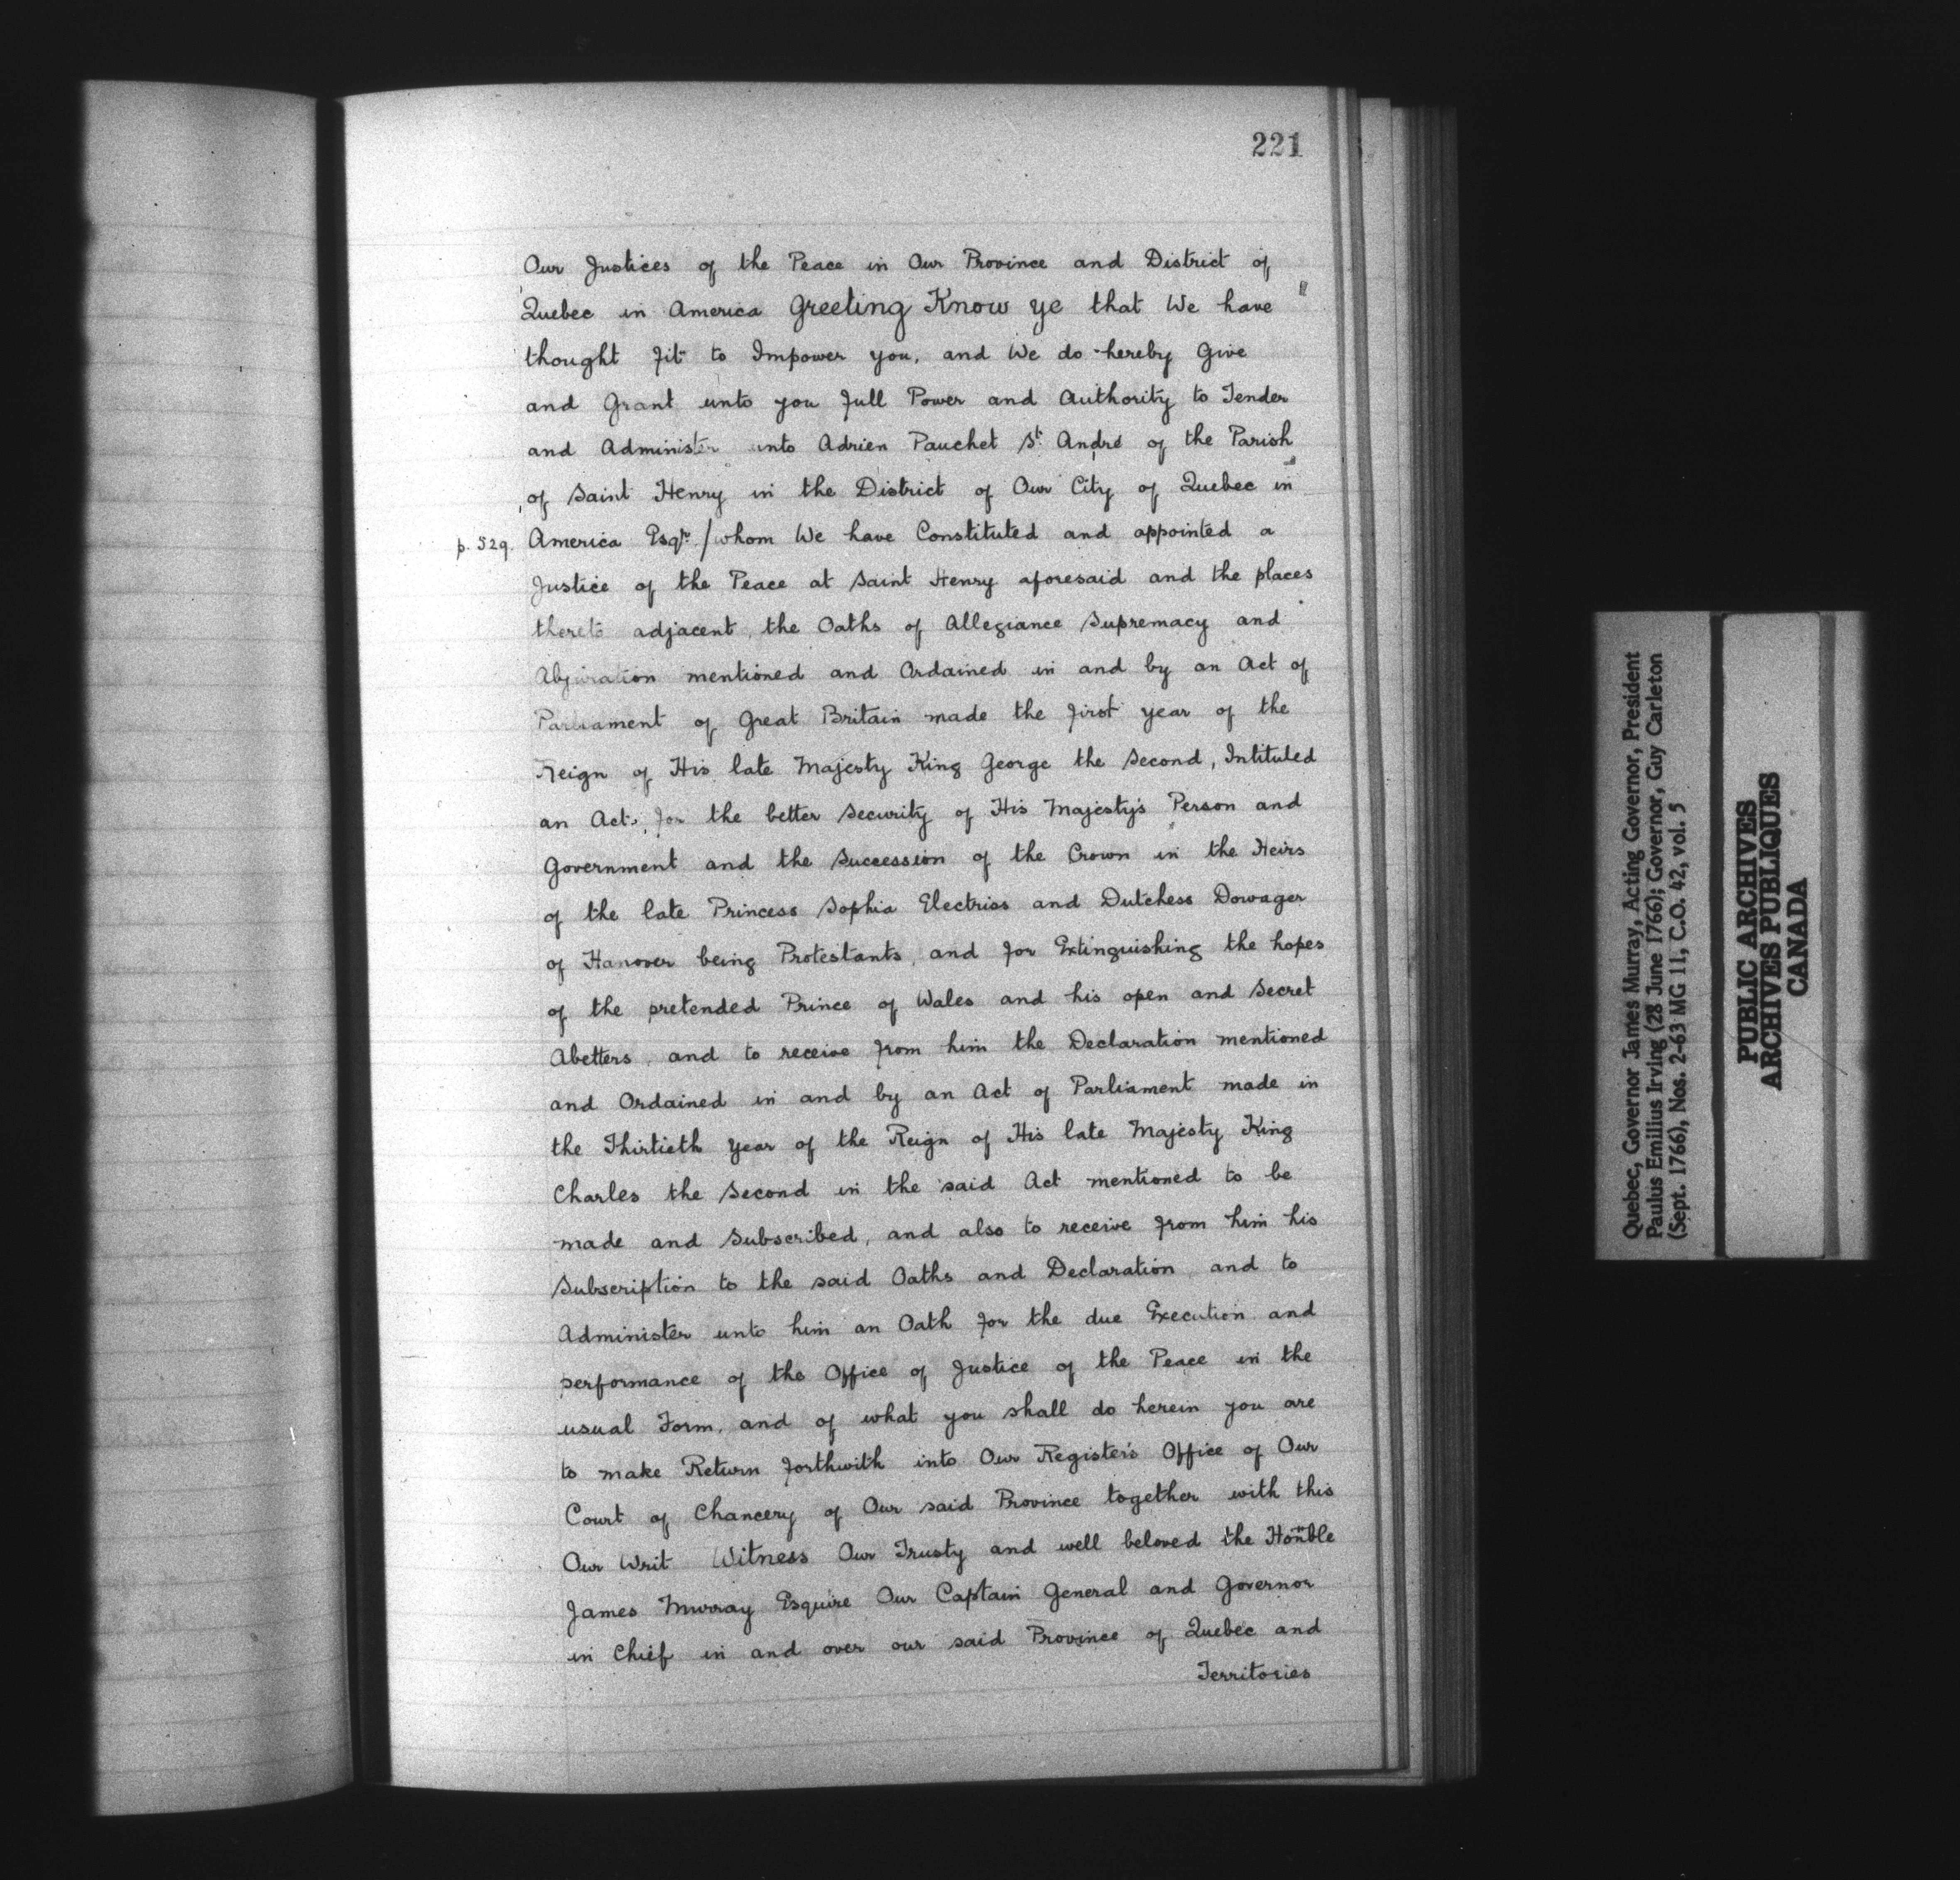 221
Our Justices of the Peace in Our Province and District of
Quebec in America Greeting Know ye that We have
thought fit to Impower you, and We do hereby Give
and Grant unto you full Power and Authority to Tender
and Administer unto Adrien Pauchet St. André of the Parish
of Saint Henry in the District of Our City of Quebec in
p. 529. America Esqr. / whom We have Constituted and appointed a
Justice of the Peace at Saint Henry aforesaid and the places
thereto adjacent, the Oaths of Allegiance Supremacy and
Abjuration mentioned and Ordained in and by an Act of
Parliament of Great Britain made the first year of the
Reign of His late Majesty King George the Second, Intituled
an Act, for the better Security of His Majesty's Person and
Government and the Succession of the Crown in the Heirs
of the late Princess Sophia Electriss and Dutchess Dowager
of Hanover being Protestants, and for Extinguishing the hopes
of the pretended Prince of Wales and his open and Secret
Abetters, and to receive from him the Declaration mentioned
and Ordained in and by an Act of Parliament made in
the Thirtieth Year of the Reign of His late Majesty King
Charles the Second in the said Act mentioned to be
made and Subscribed, and also to receive from him his
Subscription to the said Oaths and Declaration, and to
Administer unto him an Oath for the due Execution and
performance of the Office of Justice of the Peace in the
usual Form, and of what you shall do herein you are
to make Return forthwith into Our Register's Office of Our
Court of Chancery of Our said Province together with this
Our Writ Witness Our Trusty and well beloved the Honble
James Murray Esquire Our Captain General and Governor
in Chief in and over our said Province of Quebec and
Territories
Quebec, Governor James Murray, Acting Governor, President
Paulus Emilius Irving (28 June 1766); Governor, Guy Carleton
(Sept. 1766), Nos. 2-63 MG 11, C.O. 42, vol. 5
PUBLIC ARCHIVES
ARCHIVES PUBLIQUES
CANADA